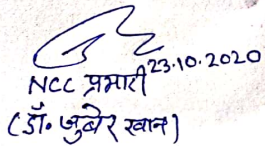 23.10.2020
NCC प्रभारी
(डॉ. जुबेर खान)